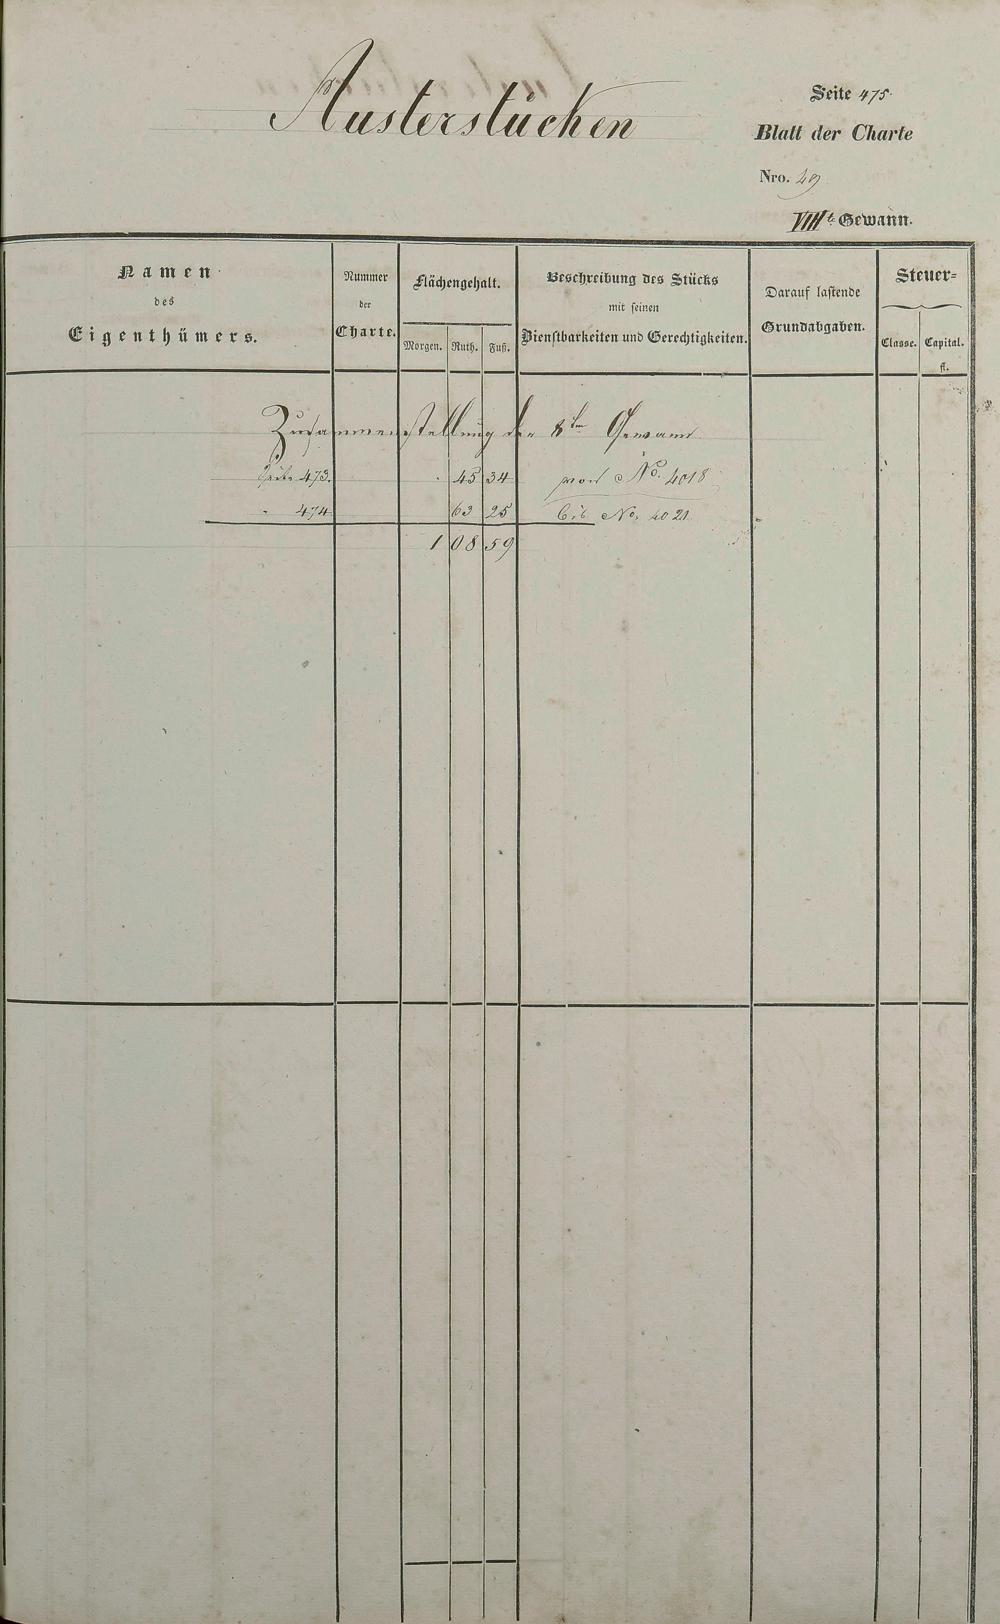 Austerstücken
Seite 475.
Blatt der Charte
Nro. 49
VIIIte Gewann.
Namen
des
Eigenthümers.
Nummer
der
Charte.
Flächengehalt.
Morgen. Ruth. Fuß.
Beschreibung des Stücks
mit seinen
Dienstbarkeiten und Gerechtigkeiten.
Darauf lastende
Grundabgaben.
Steuer-
Classe. Capital.
fl.
Zusammenstellung der 8ten Gewann
Seite 473. 45 34 von No. 4018
" 474 63 25 bis No. 4021
1 08 59